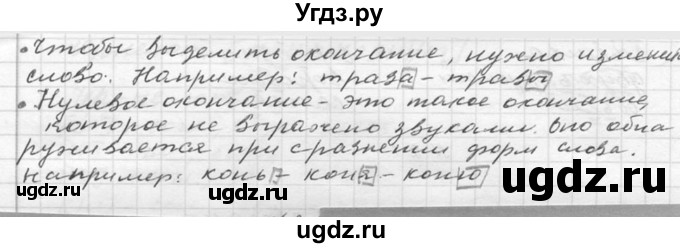 Угдз.ру
• Чтобы выделить окончание, нужно изменит
слово. Например: трава – травы
• Нулевое окончание – это такое окончание,
которое не выражено звуками. Оно обна
руживается при сравнении форм слова.
Например: конь – коня – коню
ugdz.ru ugdz.ru ugdz.ru
ugdz.ru ugdz.ru